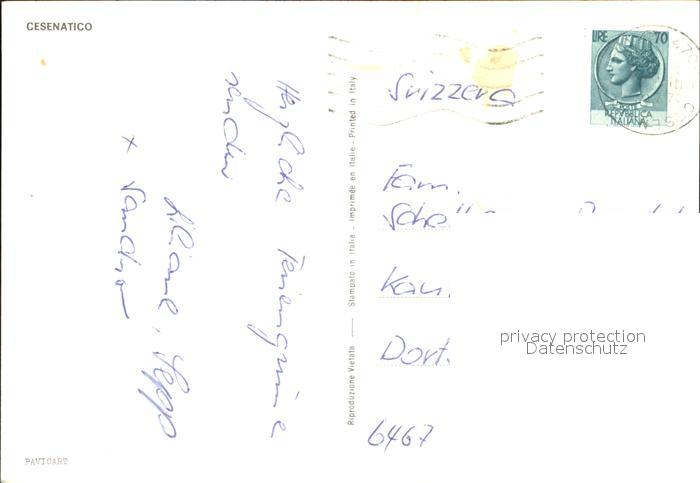 CESENATICO
Herzliche Feriengrüsse
senden
Liliane, Seppo
+ Sandro
PAVICART
Riproduzione Vietata — Stampato in Italia - Imprimée en Italie - Printed in Italy
LIRE 70
REPVBBLICA
ITALIANA
Svizzera
Fam.
Kan.
Dort.
6467
privacy protection
Datenschutz